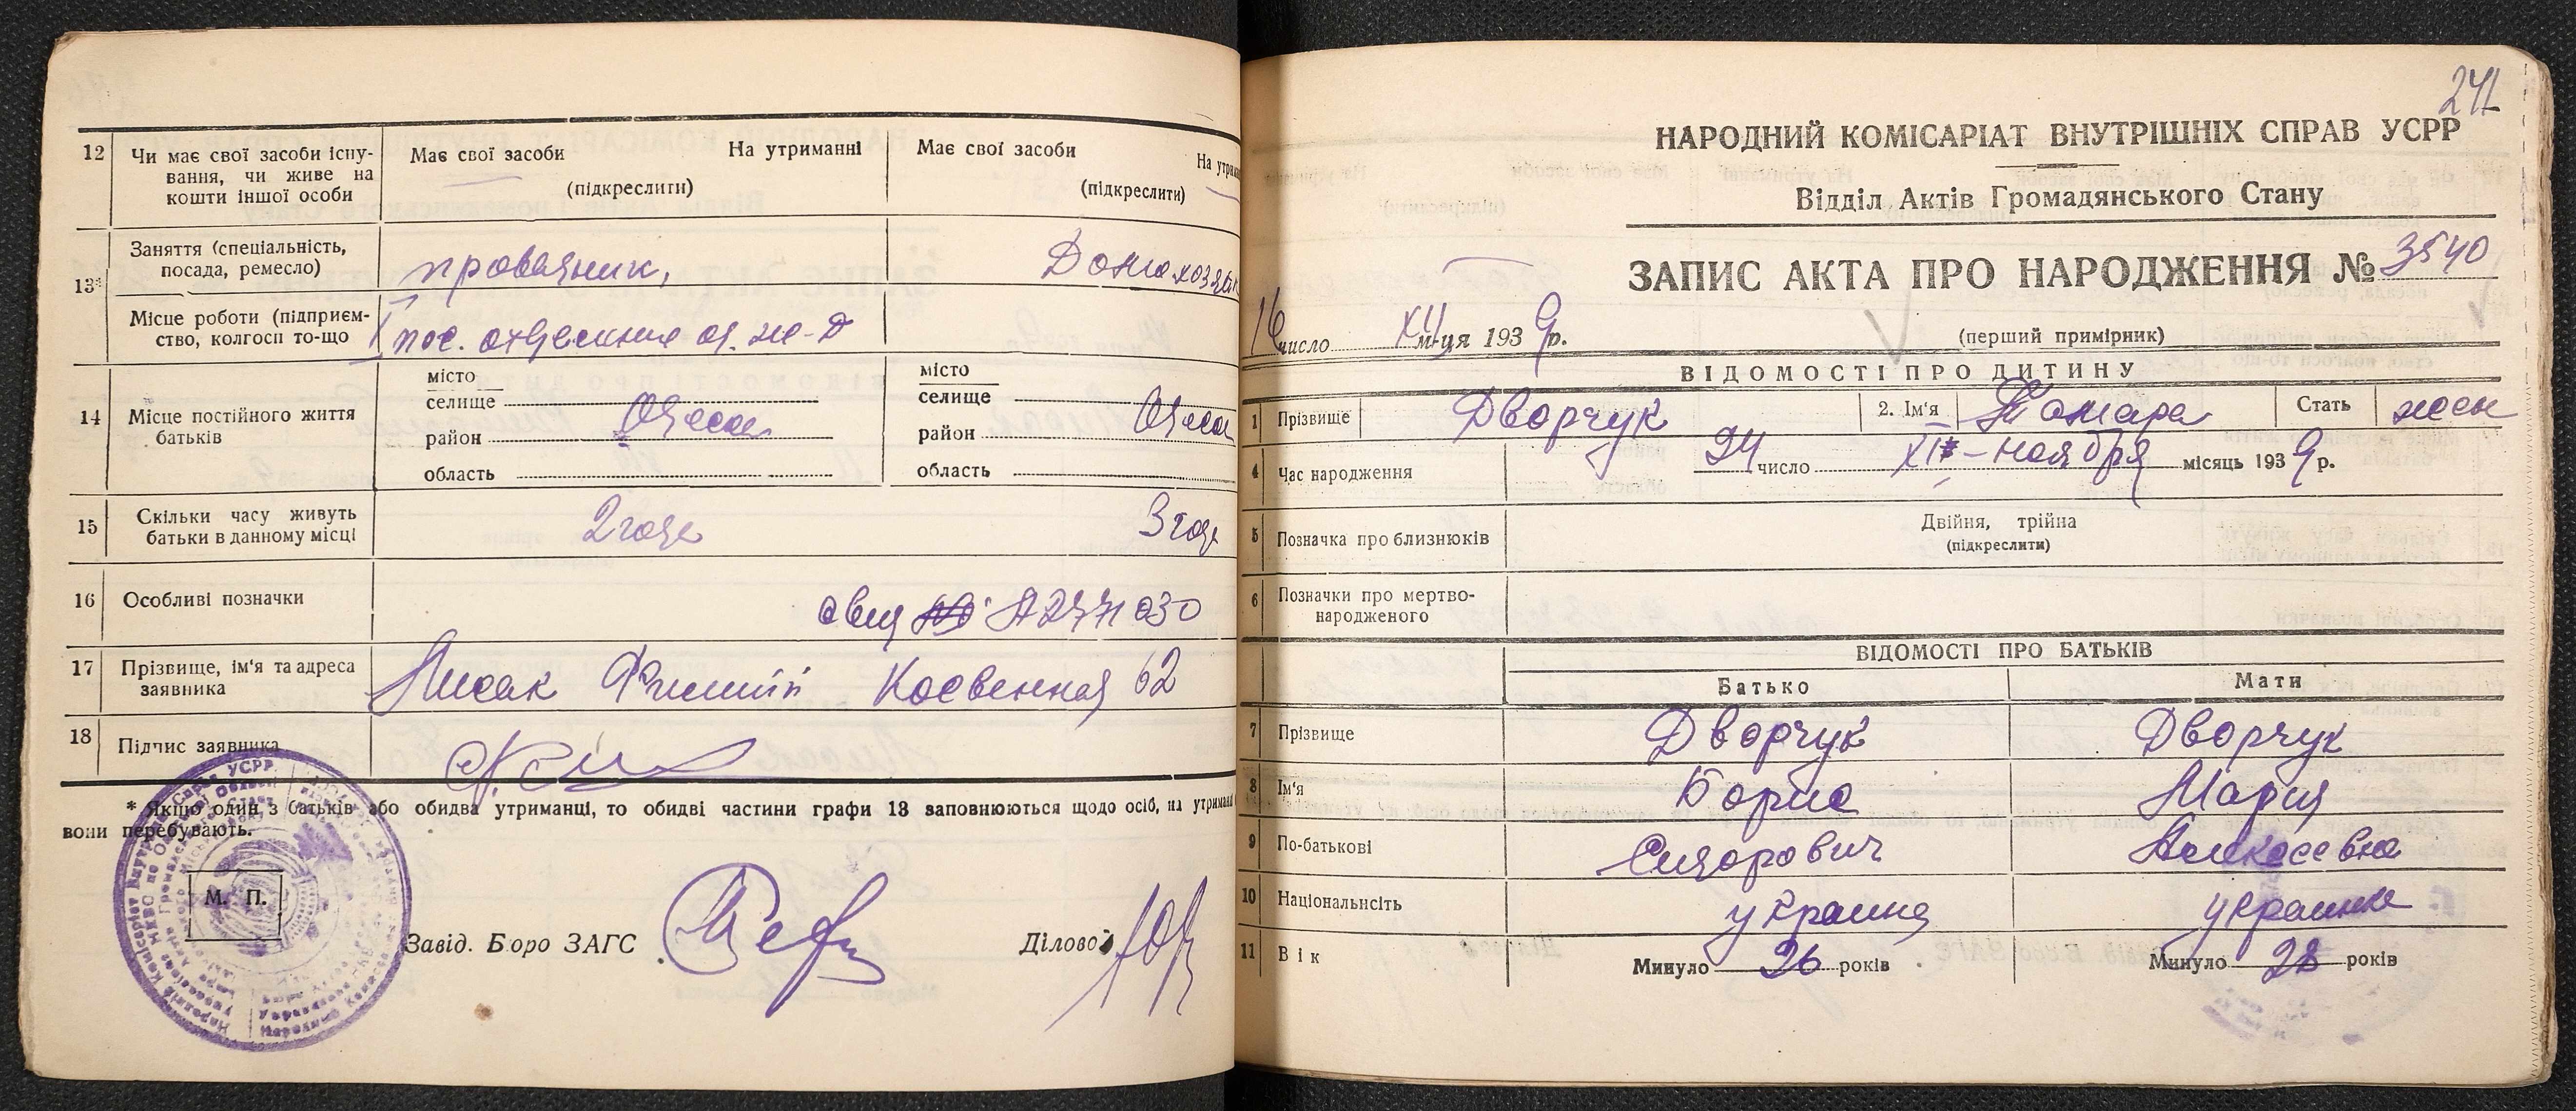 12 Чи має свої засоби існу-
вання, чи живе на
кошти іншої особи
Має свої засоби На утриманні
(підкреслити)
Має свої засоби На утрим
(підкреслити)
13* Заняття (спеціальність,
посада, ремесло)
проводник,
Домохозяйк
Місце роботи (підприєм-
ство, колгосп то-що
пос. отделение од. ж-д
14 Місце постійного життя
батьків
місто
селище
район Одесса
область
місто
селище
район Одесса
область
15 Скільки часу живуть
батьки в данному місці
2 года
3 года
16 Особливі позначки
свид А 2771030
17 Прізвище, ім'я та адреса
заявника
Лисак Филипп Косвенная 62
18 Підпис заявника
* Якщо один з батьків або обидва утриманці, то обидві частини графи 13 заповнюються щодо осіб, на утриманні
вони перебувають.
М. П.
Завід. Бюро ЗАГС
Діловод
241
НАРОДНИЙ КОМІСАРІАТ ВНУТРІШНІХ СПРАВ УСРР
Відділ Актів Громадянського Стану
ЗАПИС АКТА ПРО НАРОДЖЕННЯ № 3540
16 число XII м-ця 1939 р.
(перший примірник)
ВІДОМОСТІ ПРО ДИТИНУ
1 Прізвище Дворчук 2. Ім'я Тамара Стать жен
4 Час народження 24 число XI - ноября місяць 1939 р.
5 Позначка про близнюків
Двійня, трійна
(підкреслити)
6 Позначки про мертво-
народженого
ВІДОМОСТІ ПРО БАТЬКІВ
Батько Мати
7 Прізвище Дворчук Дворчук
8 Ім'я Борис Мария
9 По-батькові Сидорович Алексеевна
10 Національність украинец украинка
11 Вік Минуло 26 років Минуло 28 років